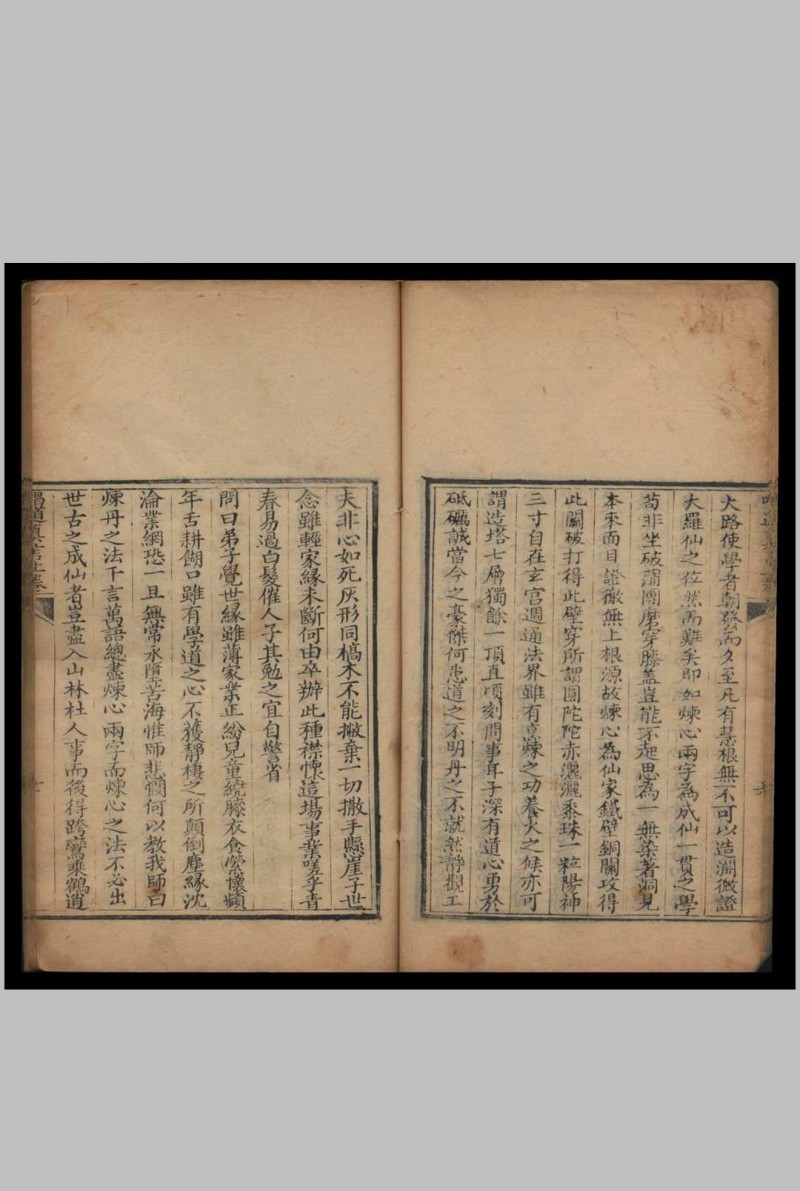 大路使學者朝發而夕至凡有慧根無不可以造淵微證
大羅仙之位然而難矣即如煉心兩字為成仙一貫之學
苟非坐破蒲團磨穿膝蓋豈能不起思為一無染著洞見
本來面目證徹無上根源故煉心為仙家鐵壁銅關攻得
此關破打得此壁穿所謂圓陀陀赤灑灑黍珠一粒陽神
三寸自在玄宮週通法界雖有烹煉之功養火之候亦可
謂造塔七層獨餘一頂直頃刻間事耳子深有道心勇於
砥礪誠當今之豪傑何患道之不明丹之不就然靜觀工
夫非心如死灰形同槁木不能撇棄一切撒手懸崖子世
念雖輕家緣未斷何由卒辦此種襟懷這場事業嗟乎青
春易過白髮催人子其勉之宜自警省
問曰弟子覺世緣雖薄家業正紛兒童繞膝衣食縈懷頻
年舌耕餬口雖有學道之心不獲靜棲之所顛倒塵緣沈
淪業網恐一旦無常永墮苦海惟師悲憫何以教我師曰
煉丹之法千言萬語總盡煉心兩字而煉心之法不必出
世古之成仙者豈盡入山林杜人事而後得跨鸞乘鶴逍